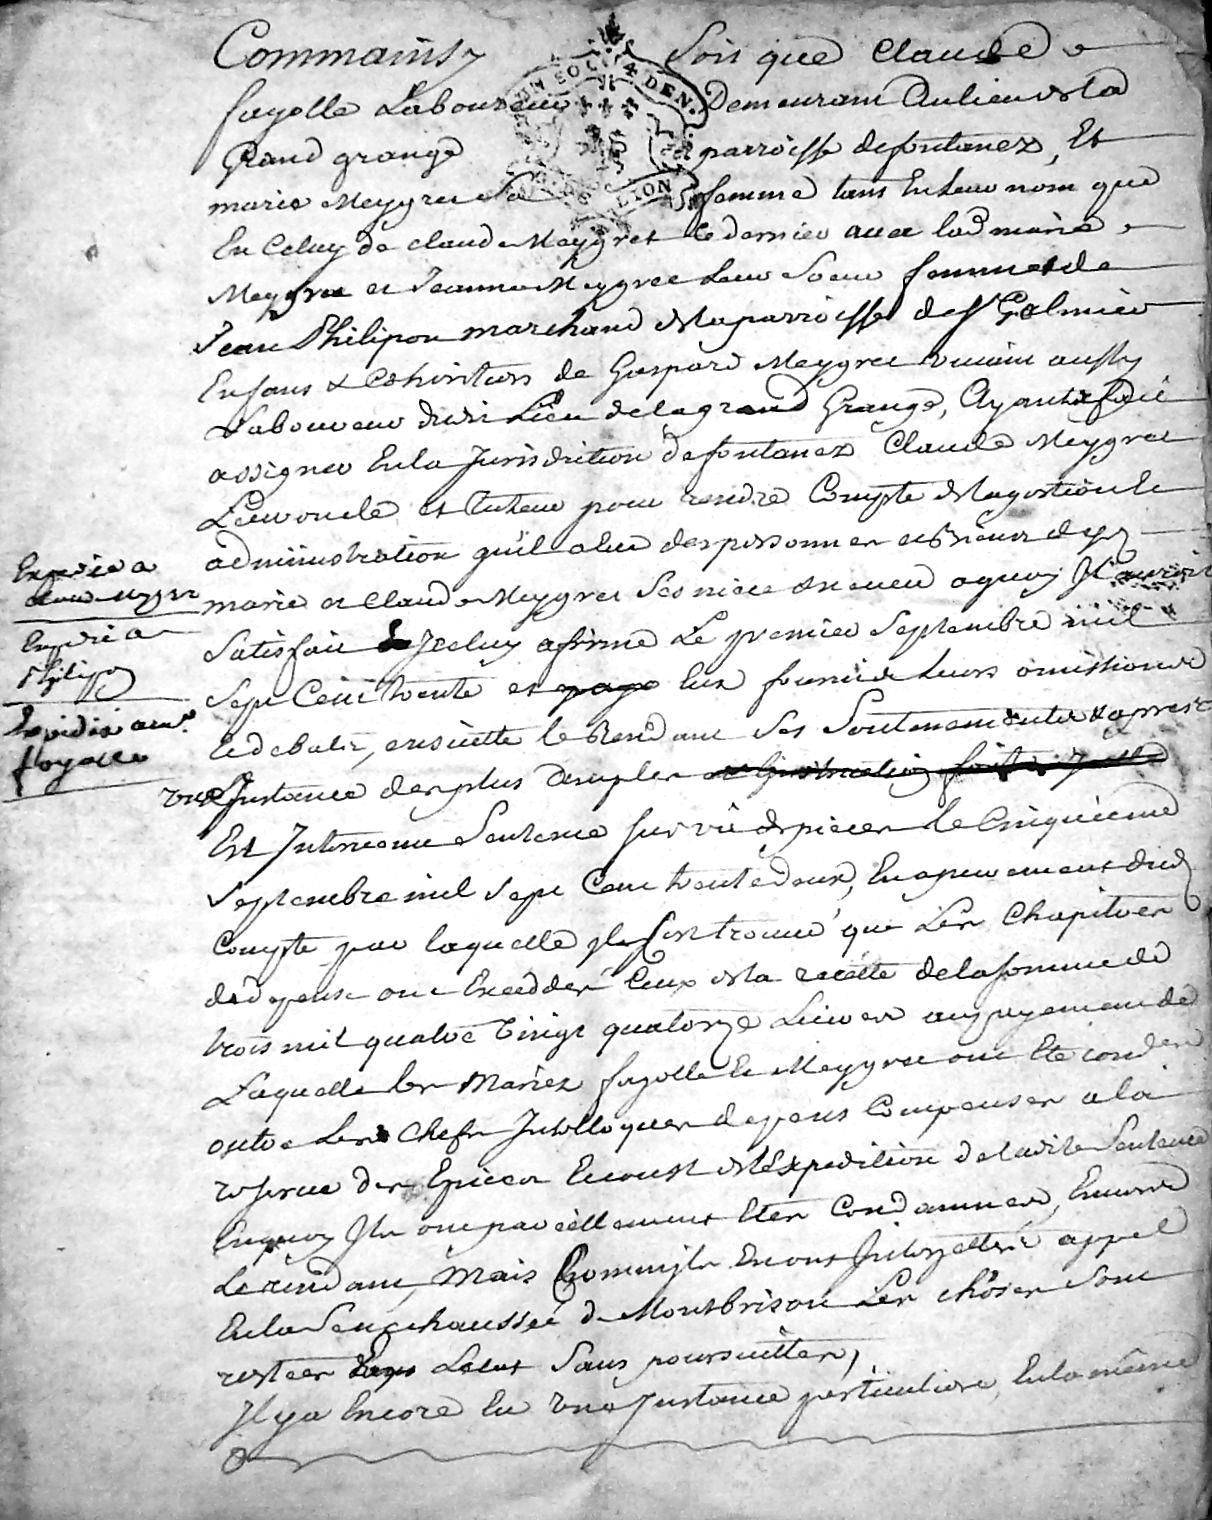 Commainsy soit que Claude
fayolle Laboureur Demeurant Au lieu de la
Grand grange parroisse de fontanez, Et
marie Meygret Sa femme tant En Leur nom que
En Celuy de claude Meygret Ce dernier avec lad marie
Meygret et Jeanne Meygret Leur Soeur femme de
Jean Philipon marchand de la parroisse de St Galmier
Enfans & Cohéritiers de Gaspard Meygret vivant aussy
Laboureur dudit Lieu de la grand Grange, Ayant fait
assigner En la Jurisdiction de fontanez Claude Meygret
Leur oncle et tuteur pour rendre Compte de la gestion &
administration qu'il a Eue des personnes et Biens desd
marie et Claude Meygret Ses niece & neveu a quoy Il auroit
Satisfait & Iceluy afirmé Le premier Septembre mil
Sept Cent trente et Eux fournir Leurs omissions &
Et debats, ensuitte le Rendant Ses Soutenements & apres
une Instance des plus amples
Est Intervenue Sentence sur vû de pieces le Cinquieme
Septembre mil Sept Cent trente deux, En apurement dud
Compte par laquelle Il s'est trouvé que Les Chapitres
de depense ont Excedder Ceux de la recette de la somme de
trois mil quatre vingt quatorze Livres au payement de
Laquelle les Mariez fayolle & Meygret ont Eté cond
outre Les Chefs Interlloquer depens Compenser a la
reserve des Epices Et coust & L'Expedition de ladite Sentence
En quoy Ils ont pareillement Eter Condamner, Envers
Le rendant, Mais Comm'ils En ont Interjetté appel
En la Senechaussée de Montbrison Les choses Sont
restées Sans poursuitter,
Il y a Encore Eu une Instance particuliere En la même
Expedié a
claude Meygret
Expedié a
Philipon
Expedié aud
fayolle
DEN.
LION